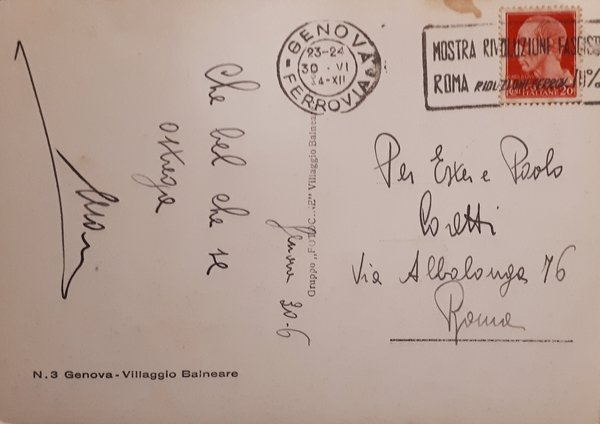 GENOVA
23-24
30 · VI
34-XII
FERROVIA
MOSTRA RIVOLUZIONE FASCISTA
ROMA RIDUZIONE FERROV. 70%
ITALIANE 20
Che bel che se
ostrega
Genova 30-6
Gruppo Villaggio Balneare
Per Ester e Paolo
Coretti
Via Albalonga 76
Roma
N. 3 Genova - Villaggio Balneare